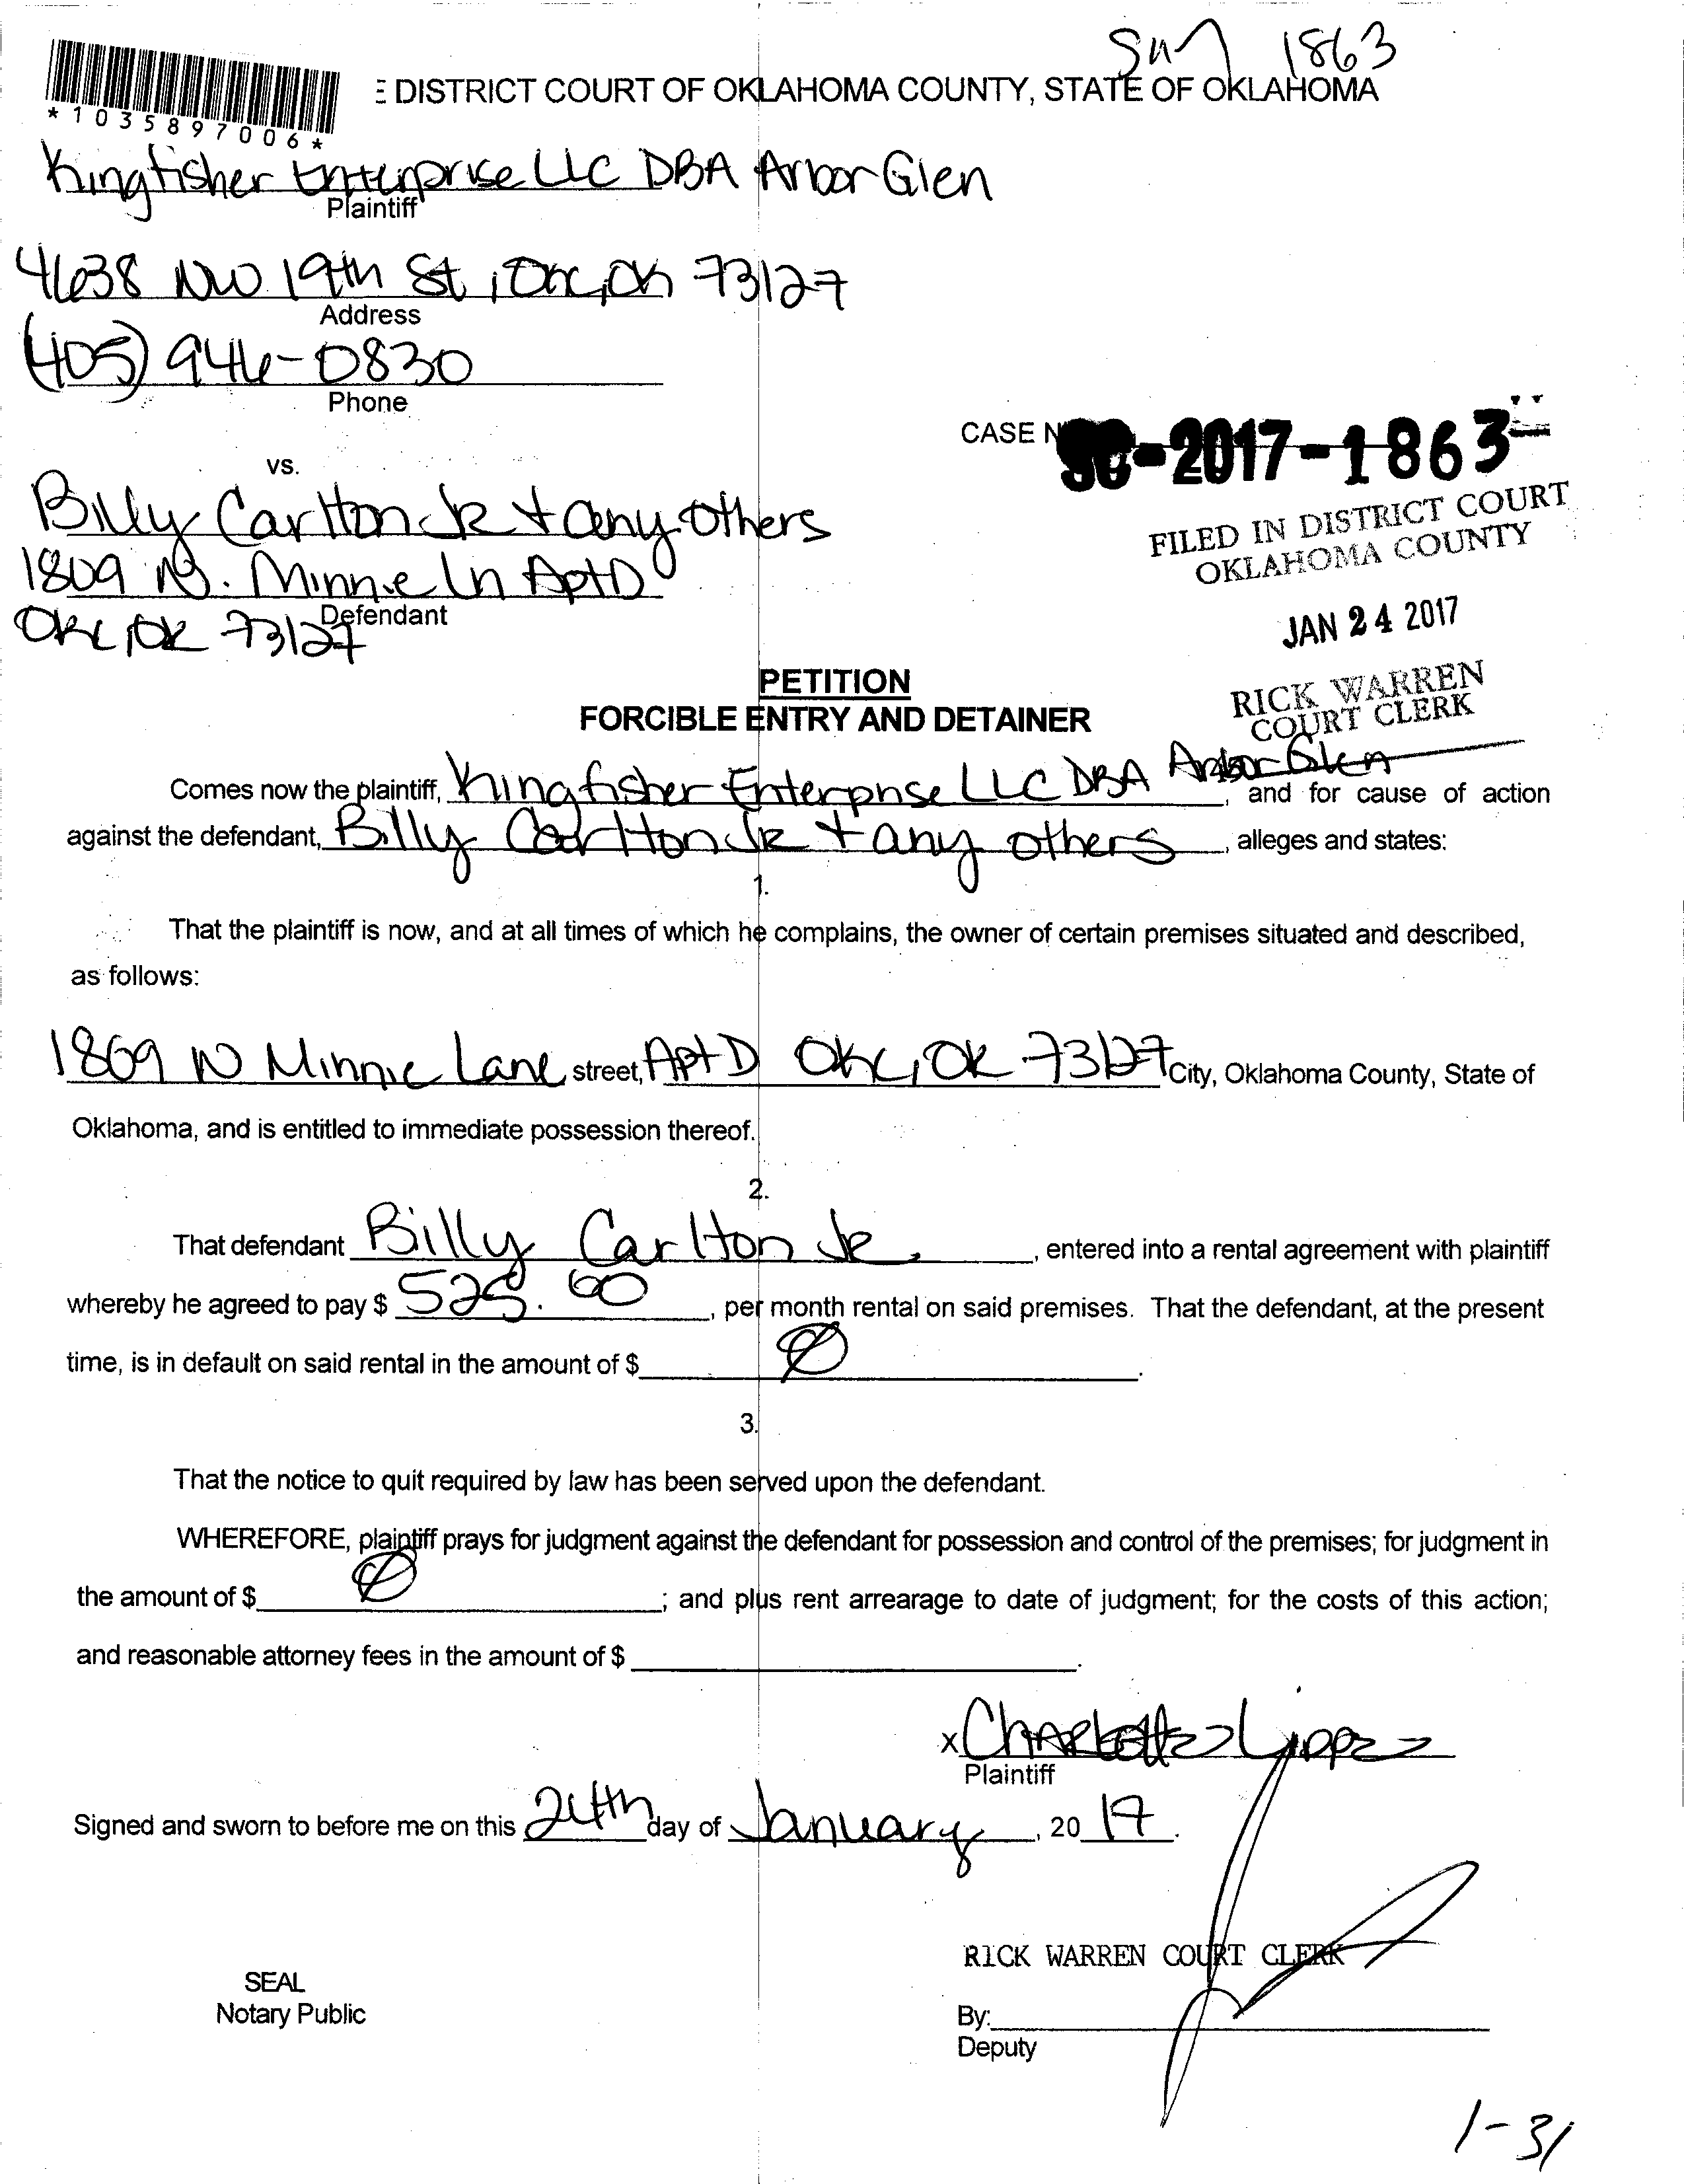 1863
DISTRICT COURT OF OKLAHOMA COUNTY, STATE OF OKLAHOMA
*1035897006*
Kingfisher Enterprise LLC DBA Arbor Glen
Plaintiff
4638 NW 19th St, OKC, OK 73127
Address
(405) 946-0830
Phone
CASE N
SC-2017-1863
vs.
Billy Carlton JR + any others
1809 N. Minnie Ln Apt D
Defendant
OKC, OK 73127
FILED IN DISTRICT COURT
OKLAHOMA COUNTY
JAN 24 2017
RICK WARREN
COURT CLERK
PETITION
FORCIBLE ENTRY AND DETAINER
Comes now the plaintiff, Kingfisher Enterprise LLC DBA Arbor Glen, and for cause of action
against the defendant, Billy Carlton JR + any others, alleges and states:
1.
That the plaintiff is now, and at all times of which he complains, the owner of certain premises situated and described,
as follows:
1809 N Minnie Lane street, Apt D OKC, OK 73127 City, Oklahoma County, State of
Oklahoma, and is entitled to immediate possession thereof.
2.
That defendant Billy Carlton JR., entered into a rental agreement with plaintiff
whereby he agreed to pay $ 525.00, per month rental on said premises. That the defendant, at the present
time, is in default on said rental in the amount of $ Ø.
3.
That the notice to quit required by law has been served upon the defendant.
WHEREFORE, plaintiff prays for judgment against the defendant for possession and control of the premises; for judgment in
the amount of $ Ø; and plus rent arrearage to date of judgment; for the costs of this action;
and reasonable attorney fees in the amount of $ .
x Charlotte
Plaintiff
Signed and sworn to before me on this 24th day of January, 20 17.
RICK WARREN COURT CLERK
SEAL
Notary Public
By:
Deputy
1-31